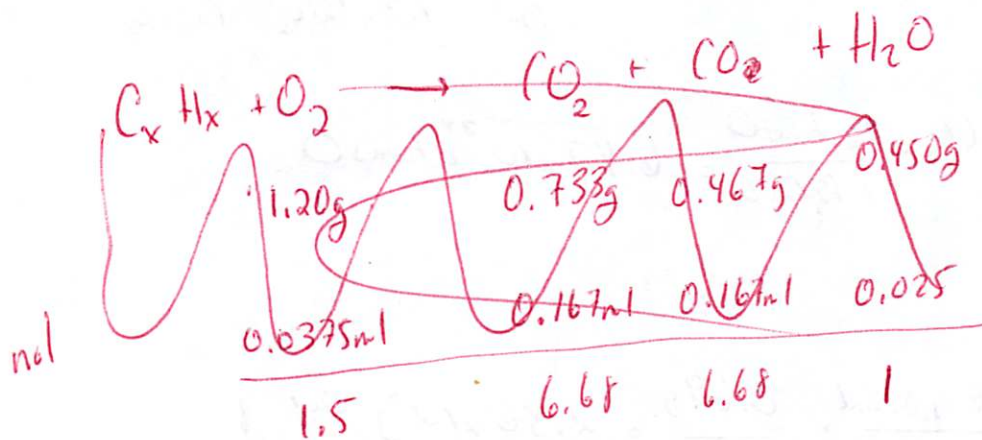 CₓHₓ + O₂ → CO₂ + CO₂ + H₂O
1.20g 0.733g 0.467g 0.450g
mol 0.0375ml 0.167ml 0.167ml 0.025
1.5 6.68 6.68 1